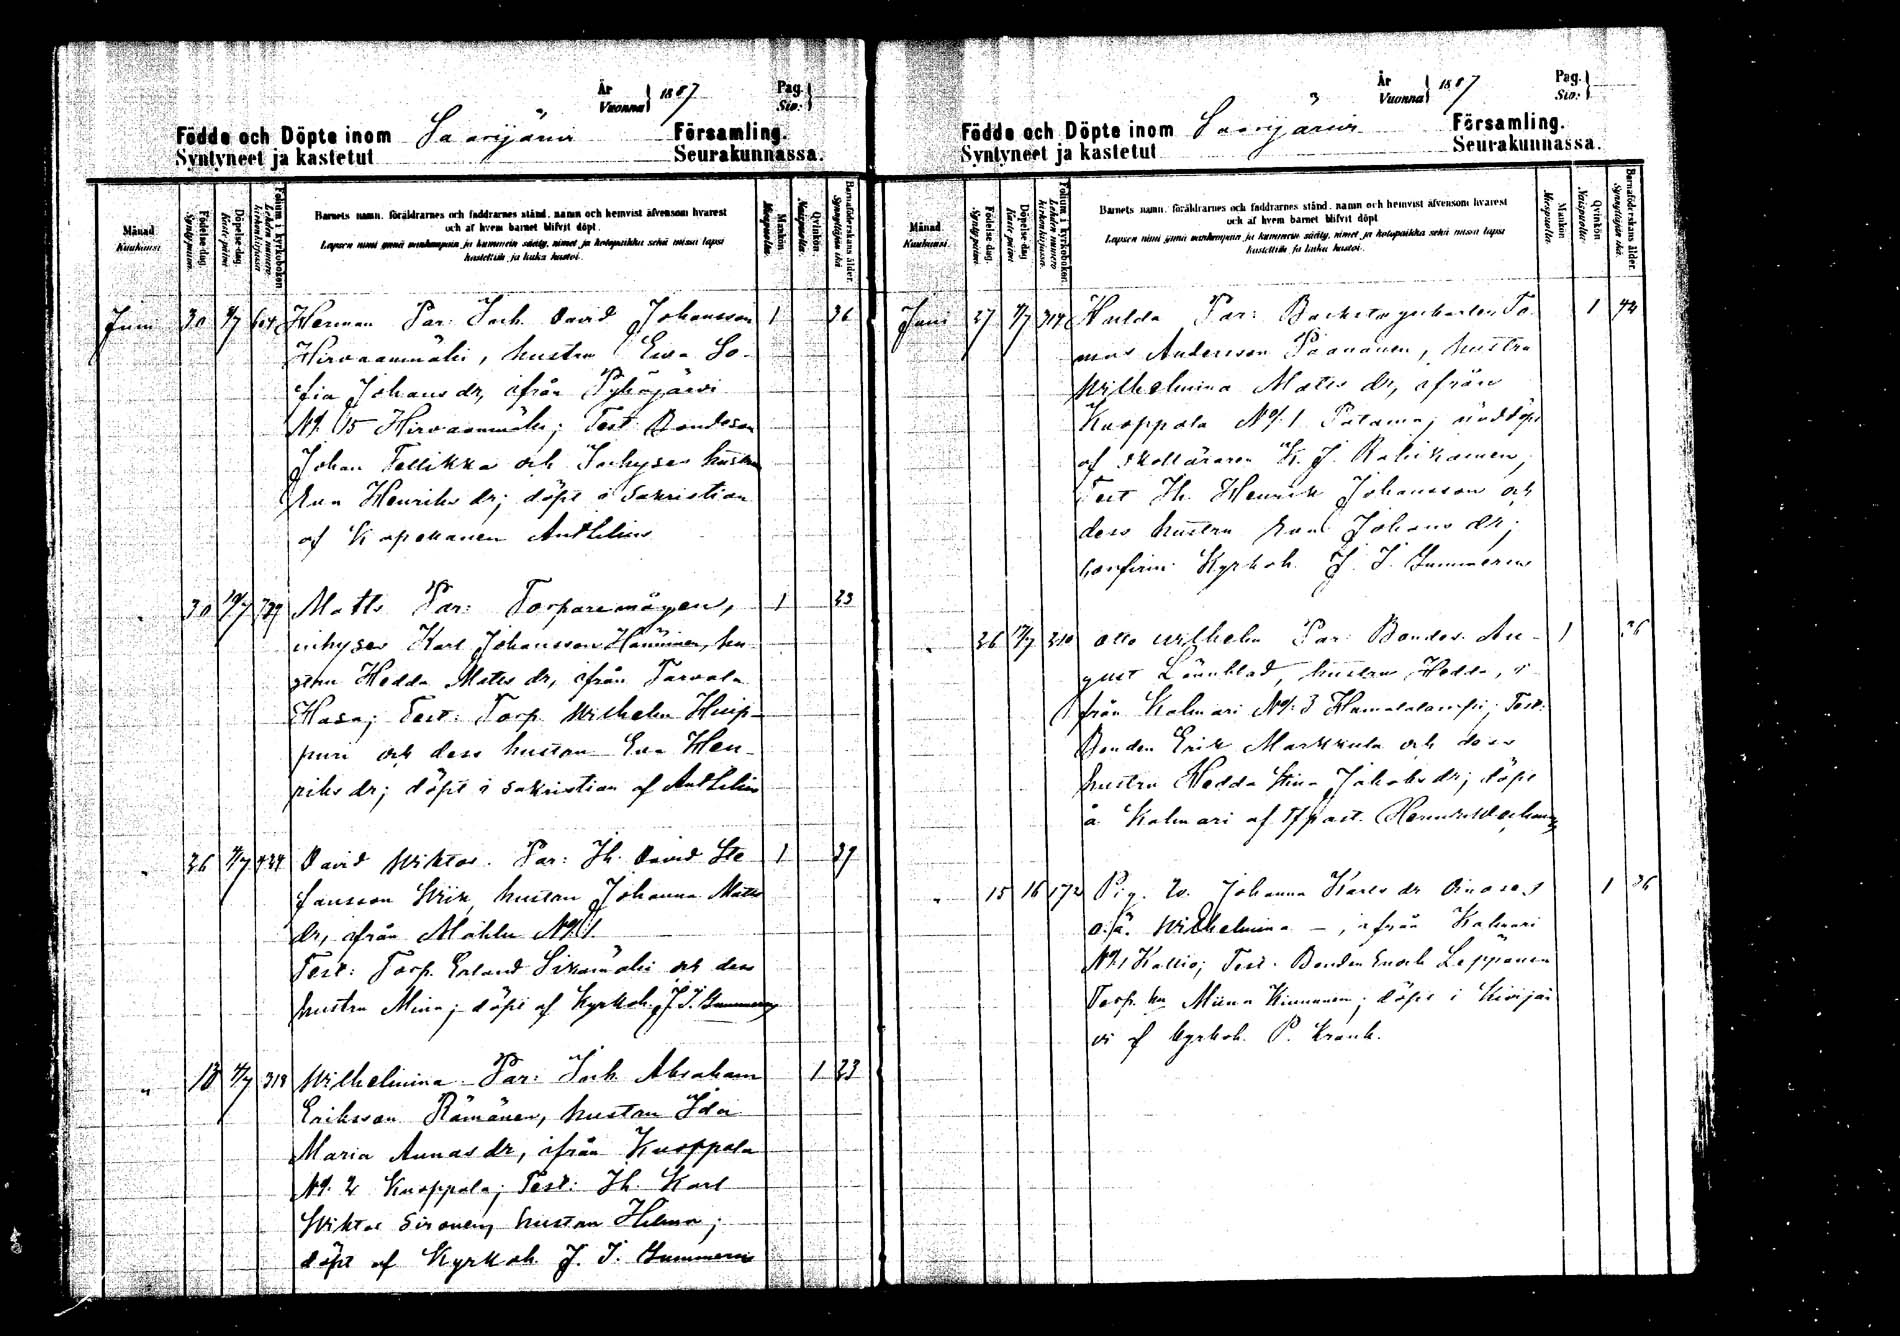 År
Vuonna
1887
Pag.
Siv:
Födde och Döpte inom Saarijärvi Församling.
Syntyneet ja kastetut Seurakunnassa.
Månad
Kuukausi.
Födelse dag.
Syntypäivä.
Döpelse dag.
Kastepäivä
Folium i kyrkoboken
Lehden numero kirkonkirjassa
Barnets namn, föräldrarnes och faddrarnes stånd, namn och hemvist äfvensom hvarest
och af hvem barnet blifvit döpt.
Lapsen nimi ynnä vanhempain ja kummein sääty, nimet ja kotopaikka sekä missä lapsi
kastettiin ja kuka kastoi.
Mankön
Miespuolta.
Qvinkön
Naispuolta.
Barnaföderskans ålder.
Synnyttäjän ikä.
Juni 30 604 Herman Par: Inh. David Johansson 1 36
Hirvaanmäki, hustru Ewa So-
fia Johans dr, ifrån Pyhäjärvi
No. 15 Hirvaanmäki; Test. Bondeson
Johan Tellikka och Inhyses hustru
Eva Henriks dr; döpt i sakristian
af Kapellanen Ant Lilius
30 739 Matts Par: Torparemågen, 1 23
inhyses Karl Johansson Hänninen, hu-
stru Hedda Mats dr, ifrån Tarvala
Hasa; Test: Torp. Wilhelm
puri och dess hustru Eva Hen-
riks dr; döpt i sakristian af Ant Lilius
26 434 David Wiktor. Par: Ih. David Ste 1 39
fansson Wiik, hustru Johanna Matts
dr, ifrån Mahlu No. 1.
Test: Torp. Erland Sikamäki och dess
hustru Mina; döpt af Kyrkoh. J. I. Gummerus
13 318 Wilhelmina Par: Inh. Abraham 1 23
Eriksson Rämänen, hustru Ida
Maria Annas dr, ifrån Knoppala
No. 2 Knoppala; Test: Ih. Karl
Wiktor Sironen, hustru Hilma;
döpt af Kyrkoh. J. I. Gummerus
År
Vuonna
1887
Pag.
Siv:
Födde och Döpte inom Saarijärvi Församling.
Syntyneet ja kastetut Seurakunnassa.
Månad
Kuukausi.
Födelse dag.
Syntypäivä.
Döpelse dag.
Kastepäivä
Folium i kyrkoboken
Lehden numero kirkonkirjassa.
Barnets namn, föräldrarnes och faddrarnes stånd, namn och hemvist äfvensom hvarest
och af hvem barnet blifvit döpt
Lapsen nimi ynnä vanhempain ja kummein sääty, nimet ja kotopaikka sekä missä lapsi
kastettiin ja kuka kastoi.
Mankön
Miespuolta.
Qvinkön
Naispuolta.
Barnaföderskans ålder.
Synnyttäjän ikä.
Juni 27 314 Hulda Par: Backstugukarlen To 1 42
mas Andersson Paananen, hustru
Wilhelmina Mats dr, ifrån
Knoppala No. 1 Patama; nöddöpt
af skolläraren K. J. Rahikainen,
Test Ih. Henrik Johansson och
dess hustru Eva Johans dr;
confirm. Kyrkoh. J. I. Gummerus
26 210 Otto Wilhelm Par: Bondes. Au- 1 26
gust Lönnblad, hustru Hedda, i
från Kalmari No. 3 Hamalalampi; Test:
Bonden Erik Markkula och dess
hustru Hedda Stina Jakobs dr; döpt
å Kalmari af Tf past.
15 16 172 Pig. Johanna Karls dr 1 36
o.ä. Wilhelmina —, ifrån Kalmari
No. 1 Kallio; Test. Bonden Enoch Leppänen
Torp. hu Miina Kinnunen; döpt i Kivijär
vi af kyrkoh. P. Krank.